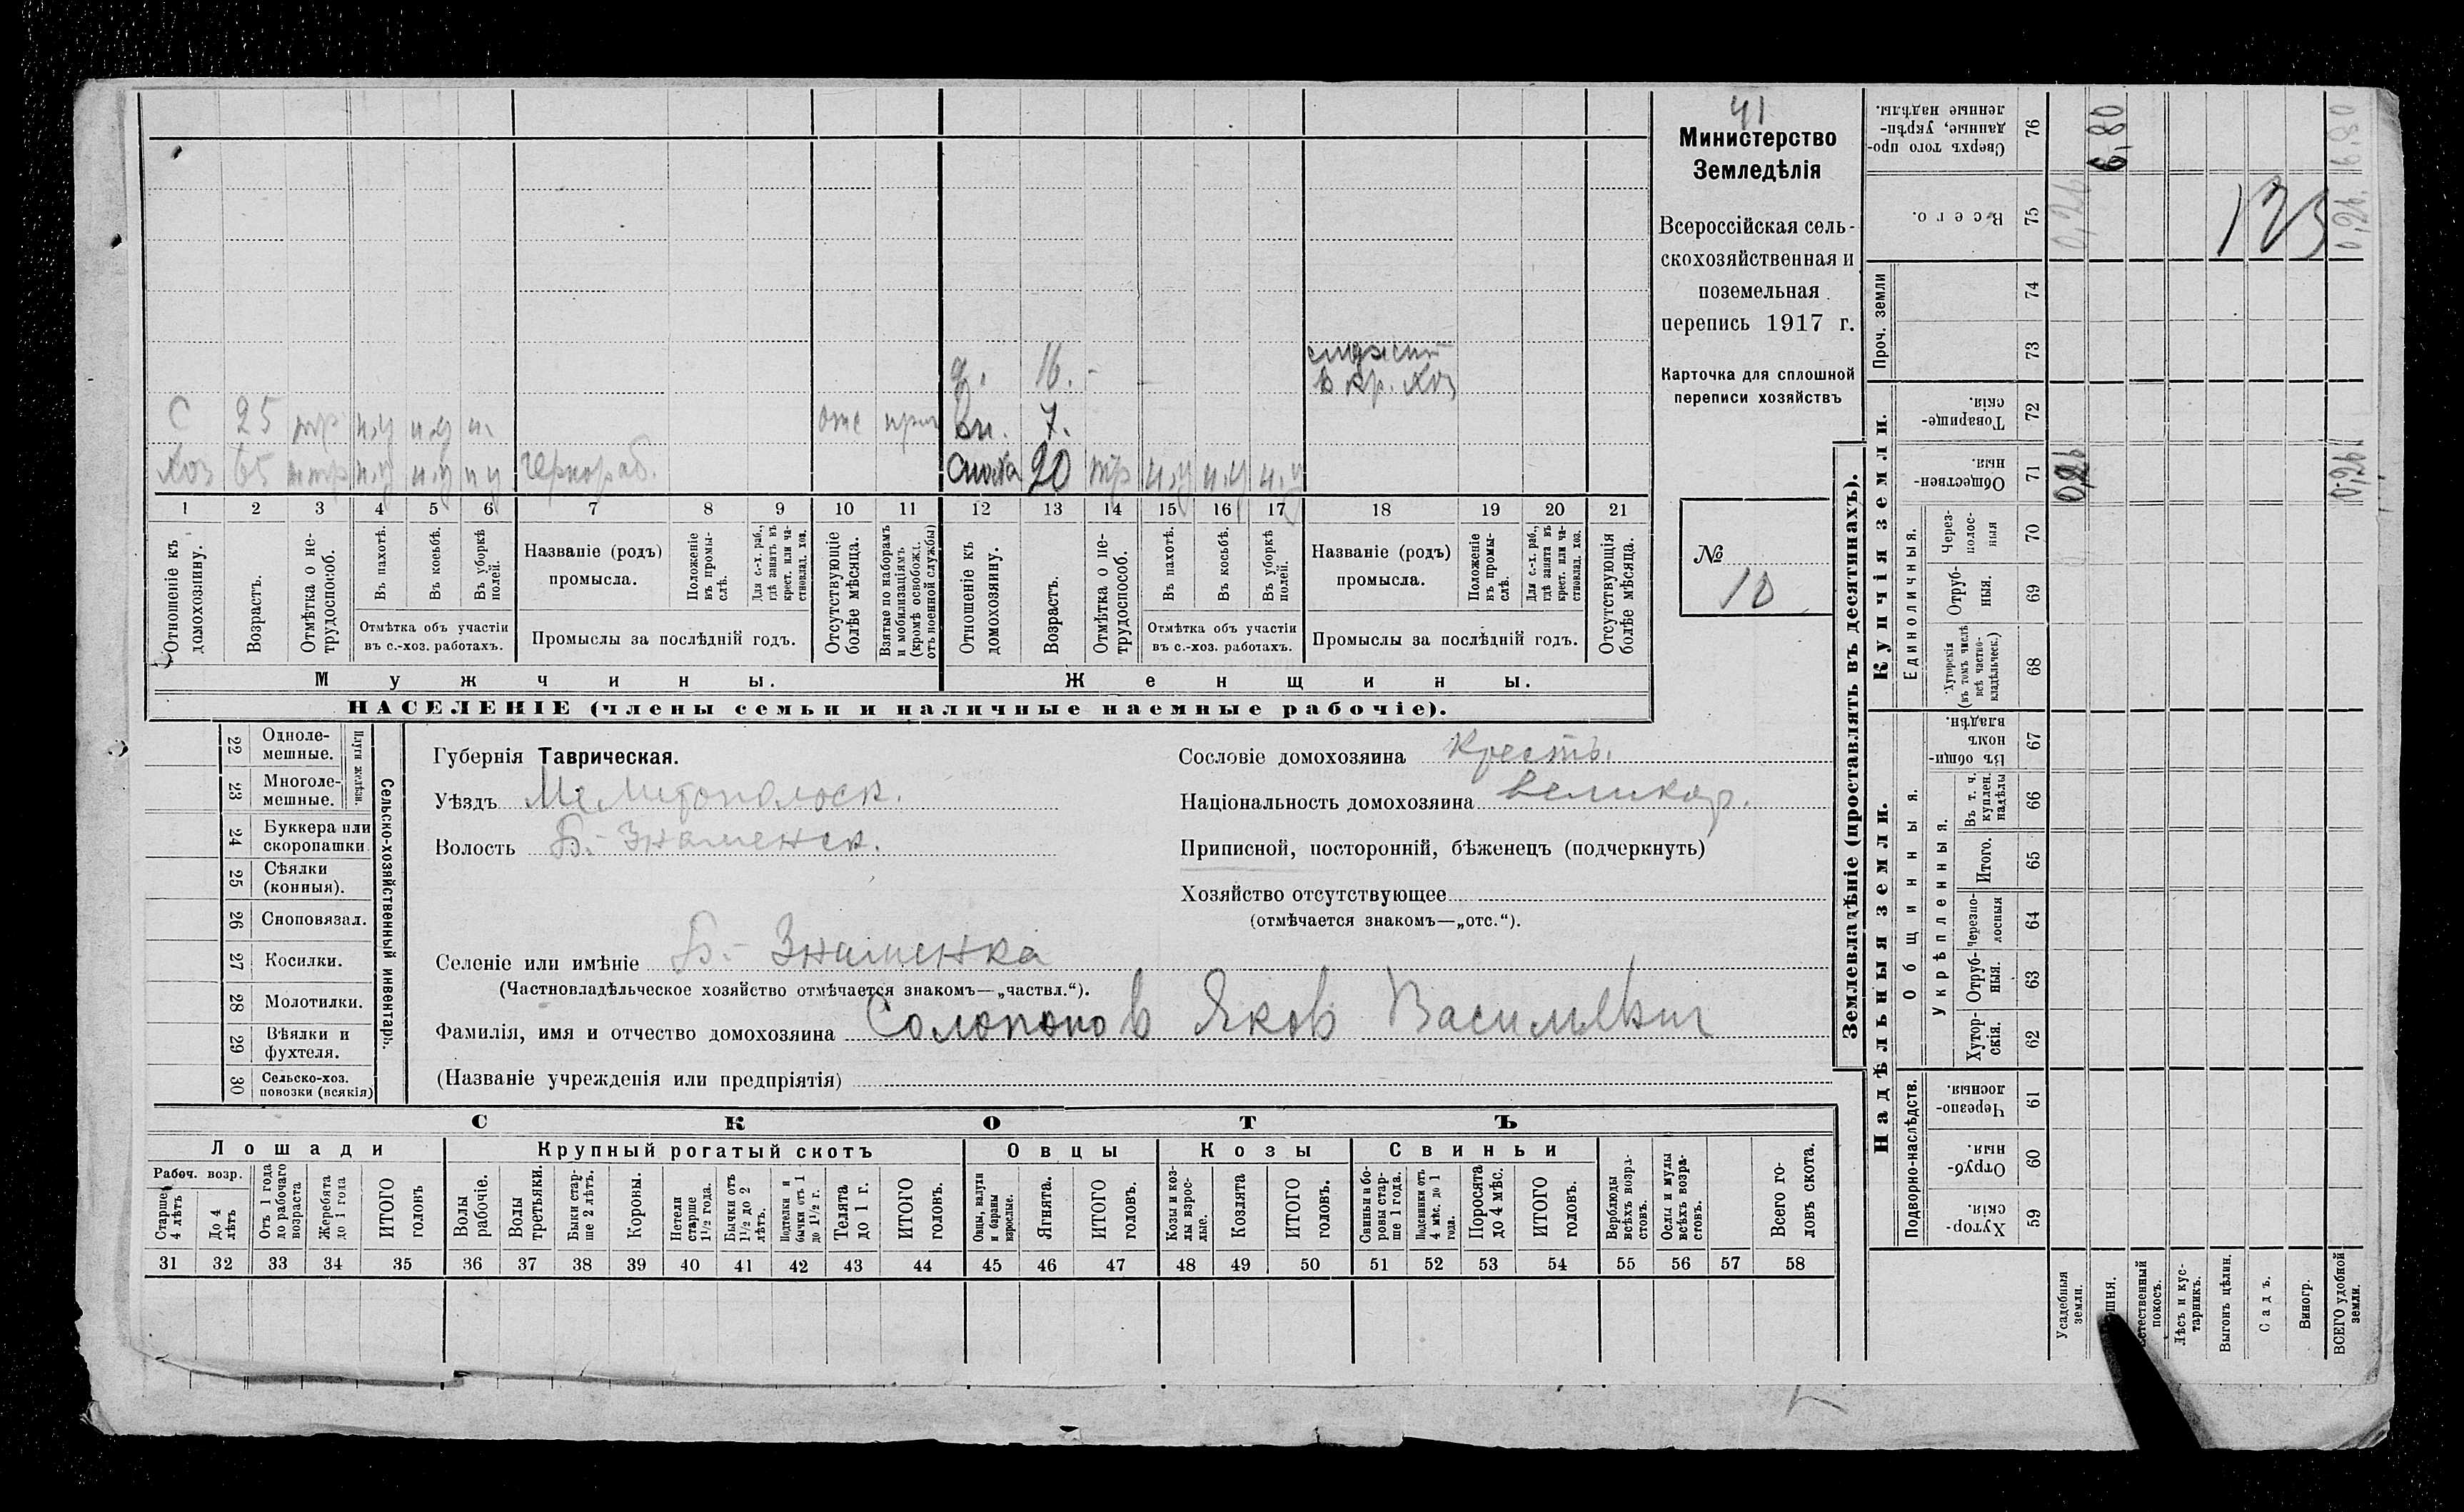 41
Министерство
Земледѣлія
Всероссійская сель-
скохозяйственная и
поземельная
перепись 1917 г.
Карточка для сплошной
переписи хозяйствъ
№
10
д. 16. -
служит
в кр. хоз
С 25 тр н.у н.у н. отс
вн. 7.
Хоз 65 н.у н.у н у чернораб.
20 тр н.у н.у н.у
1 2 3 4 5 6 7 8 9 10 11 12 13 14 15 16 17 18 19 20 21
Отношеніе къ домохозяину.
Возрастъ.
Отмѣтка о не-трудоспособ.
Въ пахотѣ.
Въ косьбѣ.
Въ уборкѣ полей.
Отмѣтка объ участіи
въ с.-хоз. работахъ.
Названіе (родъ)
промысла.
Положеніе въ промы-слѣ.
Для с.-х. раб., гдѣ занятъ въ крест. или ча-стновлад. хоз.
Промыслы за послѣдній годъ.
Отсутствующіе болѣе мѣсяца.
Взятые по наборамъ и мобилизаціямъ (кромѣ освобожд. отъ военной службы)
Отношеніе къ домохозяину.
Возрастъ.
Отмѣтка о не-трудоспособ.
Въ пахотѣ.
Въ косьбѣ.
Въ уборкѣ полей.
Отмѣтка объ участіи
въ с.-хоз. работахъ.
Названіе (родъ)
промысла.
Положеніе въ промы-слѣ.
Для с.-х. раб., гдѣ занята въ крест. или ча-стновлад. хоз.
Промыслы за послѣдній годъ.
Отсутствующія болѣе мѣсяца.
Мужчины.
Женщины.
НАСЕЛЕНІЕ (члены семьи и наличные наемные рабочіе).
22 Одноле-мешные.
23 Многоле-мешные.
Плуги желѣзн.
24 Буккера или скоропашки
25 Сѣялки (конныя).
26 Сноповязал.
27 Косилки.
28 Молотилки.
29 Вѣялки и фухтеля.
30 Сельско-хоз. повозки (всякія)
Сельско-хозяйственный инвентарь.
Губернія Таврическая.
Уѣздъ Мелитопольск.
Волость Б.-Знаменск.
Сословіе домохозяина Крестьян.
Національность домохозяина великор.
Приписной, посторонній, бѣженецъ (подчеркнуть)
Хозяйство отсутствующее
(отмѣчается знакомъ—„отс.“).
Селеніе или имѣніе Б.- Знаменка
(Частновладѣльческое хозяйство отмѣчается знакомъ—„частвл.“).
Фамилія, имя и отчество домохозяина Солопов Яков Васильевич
(Названіе учрежденія или предпріятія)
СКОТЪ
Лошади
Крупный рогатый скотъ
Овцы
Козы
Свиньи
Рабоч. возр.
Старше 4 лѣтъ
До 4 лѣтъ
Отъ 1 года до рабочаго возраста
Жеребята до 1 года
ИТОГО головъ
Волы рабочіе.
Волы третьяки.
Быки стар-ше 2 лѣтъ.
Коровы.
Нетели старше 1½ года.
Бычки отъ 1½ до 2 лѣтъ.
Подтелки и бычки отъ 1 до 1½ г.
Телята до 1 г.
ИТОГО головъ.
Овцы, валухи и бараны взрослые.
Ягнята.
ИТОГО головъ.
Козы и коз-лы взрос-лые.
Козлята
ИТОГО головъ.
Свиньи и бо-ровы стар-ше 1 года.
Подсвинки отъ 4 мѣс. до 1 года.
Поросята до 4 мѣс.
ИТОГО головъ.
Верблюды всѣхъ возра-стовъ.
Ослы и мулы всѣхъ возра-стовъ.
Всего го-ловъ скота.
31 32 33 34 35 36 37 38 39 40 41 42 43 44 45 46 47 48 49 50 51 52 53 54 55 56 57 58
Землевладѣніе (проставлять въ десятинахъ).
Надѣльныя земли.
Купчія земли.
Проч. земли
Подворно-наслѣдств.
Общинныя.
Укрѣпленныя.
Единоличныя.
Хутор-скія. 59
Отруб-ныя 60
Черезпо-лосныя 61
Хутор-скія. 62
Отруб-ныя. 63
Черезпо-лосныя 64
Итого. 65
Въ т. ч. куплен. надѣлы 66
Въ общин-номъ владѣн. 67
Хуторскія (въ томъ числѣ всѣ частно-владѣльческ.) 68
Отруб-ныя. 69
Через-полос-ныя 70
Обществен-ныя. 71
Товарище-скія. 72
73
74
Всего. 75
Сверхъ того про-данные, укрѣп-ленные надѣлы. 76
0,26
0,26
0,26
0,26
6,80
6,80
123
Усадебныя земли.
Естественный покосъ.
Лѣсъ и кус-тарникъ.
Выгонъ цѣлин.
Садъ.
Виногр.
ВСЕГО удобной земли.